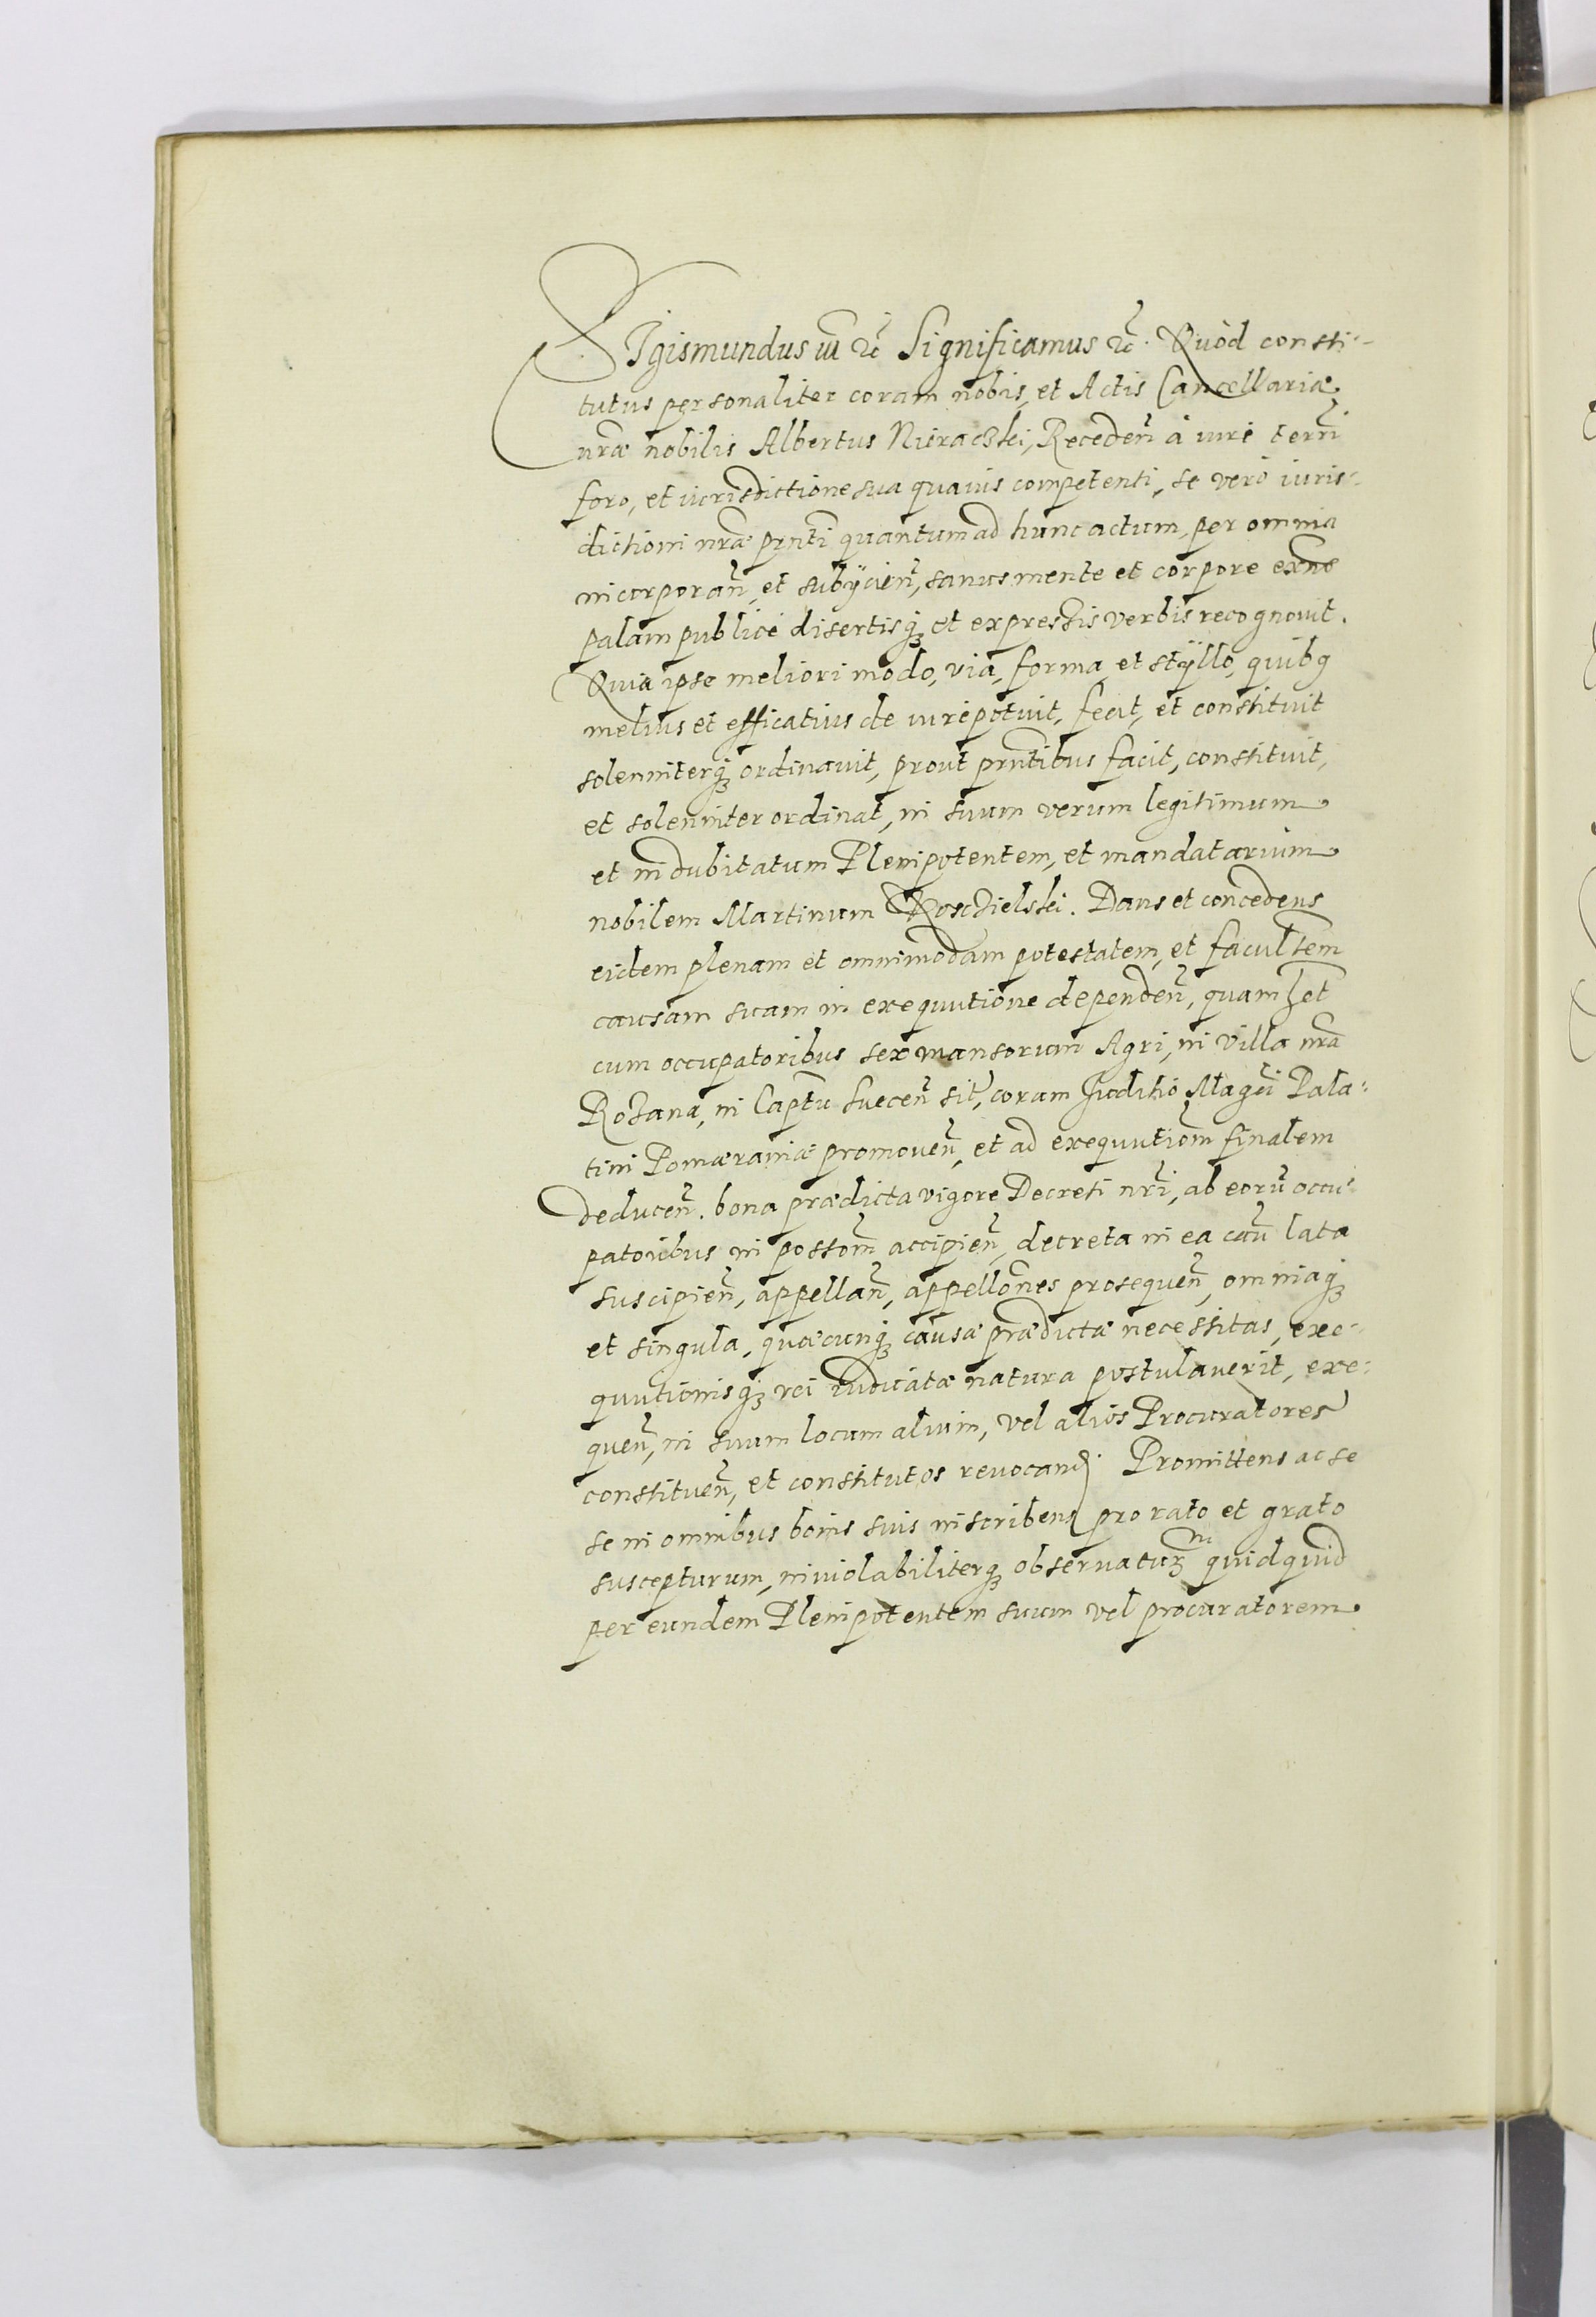 Sigismundus III etc̃ Significamus etc̃. Quòd consti-
tutus personaliter coram nobis, et Actis Cancellariæ
nr̃æ nobilis Albertus Nieraczki, Receden̄ à iure terr̃i
foro, et iurisdictione sua quavis competenti, se verò iuris-
dictioni nr̃æ pr̃nti quantum ad hunc actum, per omnia
incorporan̄, et subÿcien̄, sanus mente et corpore exñs
palam publicè disertisq; et expressis verbis recognovit.
Quia ipse meliori modo, via, forma, et stÿllo, quibq
melius et efficatius de iure potuit, fecit, et constituit
solenniterq; ordinavit, prout pr̃ntibus facit, constituit,
et solenniter ordinat, in suum verum legitimum
et indubitatum Plenipotentem, et mandatarium
nobilem Martinum Koscielski. Dans et concedens
eidem plenam et omnimodam potestatem, et facultem̄
causam suam in exequutione dependen̄, quam het̄
cum occupatoribus sex mansorum Agri, in Villa nr̃a
Rozana, in Captu Suecen̄ sit̄, coram Iuditio Magci Pala-
tini Pomæraniæ promoven̄, et ad exequutiom̄ finalem
deducen̄. bona prædicta vigore Decreti nr̃i, ab eorū occu-
patoribus in possom̄ accipien̄, decreta in ea cau̅ lata
suscipien̄, appellan̄, appellõnes prosequen̄, omniaq;
et singula, quæcunq; causæ prædictæ necessitas, exe-
quutionisq; rei iudicatæ natura postulaverit, exe-
quen̄, in suum locum alium, vel alios Procuratores
constituen̄, et constitutos revocand. Promittens ac se
se in omnibus bonis suis inscribens pro rato et grato
suscepturum, inviolabiliterq; observatur̄m quidquid
per eundem Plenipotentem suum vel procuratorem